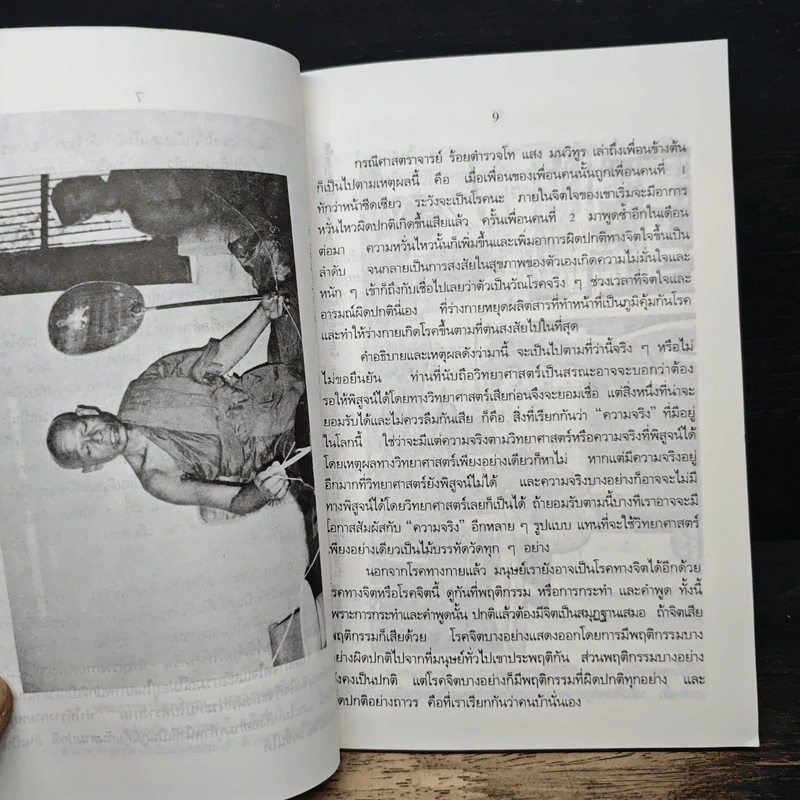 9
กรณีศาสตราจารย์ ร้อยตำรวจโท แสง มนวิทูร เล่าถึงเพื่อนข้างต้น
ก็เป็นไปตามเหตุผลนี้ คือ เมื่อเพื่อนของเพื่อนคนนั้นถูกเพื่อนคนที่ 1
ทักว่าหน้าซีดเซียว ระวังจะเป็นโรคนะ ภายในจิตใจของเขาเริ่มจะมีอาการ
หวั่นไหวผิดปกติเกิดขึ้นเสียแล้ว ครั้นเพื่อนคนที่ 2 มาพูดซ้ำอีกในเดือน
ต่อมา ความหวั่นไหวนั้นก็เพิ่มขึ้นและเพิ่มอาการผิดปกติทางจิตใจขึ้นเป็น
ลำดับ จนกลายเป็นการสงสัยในสุขภาพของตัวเองเกิดความไม่มั่นใจและ
หนัก ๆ เข้าก็ถึงกับเชื่อไปเลยว่าตัวเป็นวัณโรคจริง ๆ ช่วงเวลาที่จิตใจและ
อารมณ์ผิดปกตินี่เอง ที่ร่างกายหยุดผลิตสารที่ทำหน้าที่เป็นภูมิคุ้มกันโรค
และทำให้ร่างกายเกิดโรคขึ้นตามที่ตนสงสัยไปในที่สุด
คำอธิบายและเหตุผลดังว่ามานี้ จะเป็นไปตามที่ว่านี้จริง ๆ หรือไม่
ไม่ขอยืนยัน ท่านที่นับถือวิทยาศาสตร์เป็นสรณะอาจจะบอกว่าต้อง
รอให้พิสูจน์ได้โดยทางวิทยาศาสตร์เสียก่อนจึงจะยอมเชื่อ แต่สิ่งหนึ่งที่น่าจะ
ยอมรับได้และไม่ควรลืมกันเสีย ก็คือ สิ่งที่เรียกกันว่า “ความจริง” ที่มีอยู่
ในโลกนี้ ใช่ว่าจะมีแต่ความจริงตามวิทยาศาสตร์หรือความจริงที่พิสูจน์ได้
โดยเหตุผลทางวิทยาศาสตร์เพียงอย่างเดียวก็หาไม่ หากแต่มีความจริงอยู่
อีกมากที่วิทยาศาสตร์ยังพิสูจน์ไม่ได้ และความจริงบางอย่างก็อาจจะไม่มี
ทางพิสูจน์ได้โดยวิทยาศาสตร์เลยก็เป็นได้ ถ้ายอมรับตามนี้บางทีเราอาจจะมี
โอกาสสัมผัสกับ “ความจริง” อีกหลาย ๆ รูปแบบ แทนที่จะใช้วิทยาศาสตร์
เพียงอย่างเดียวเป็นไม้บรรทัดวัดทุก ๆ อย่าง
นอกจากโรคทางกายแล้ว มนุษย์เรายังอาจเป็นโรคทางจิตได้อีกด้วย
โรคทางจิตหรือโรคจิตนี้ ดูกันที่พฤติกรรม หรือการกระทำ และคำพูด ทั้งนี้
เพราะการกระทำและคำพูดนั้น ปกติแล้วต้องมีจิตเป็นสมุฏฐานเสมอ ถ้าจิตเสีย
พฤติกรรมก็เสียด้วย โรคจิตบางอย่างแสดงออกโดยการมีพฤติกรรมบาง
อย่างผิดปกติไปจากที่มนุษย์ทั่วไปเขาประพฤติกัน ส่วนพฤติกรรมบางอย่าง
ยังคงเป็นปกติ แต่โรคจิตบางอย่างก็มีพฤติกรรมที่ผิดปกติทุกอย่าง และ
ผิดปกติอย่างถาวร คือที่เราเรียกกันว่าคนบ้านั่นเอง